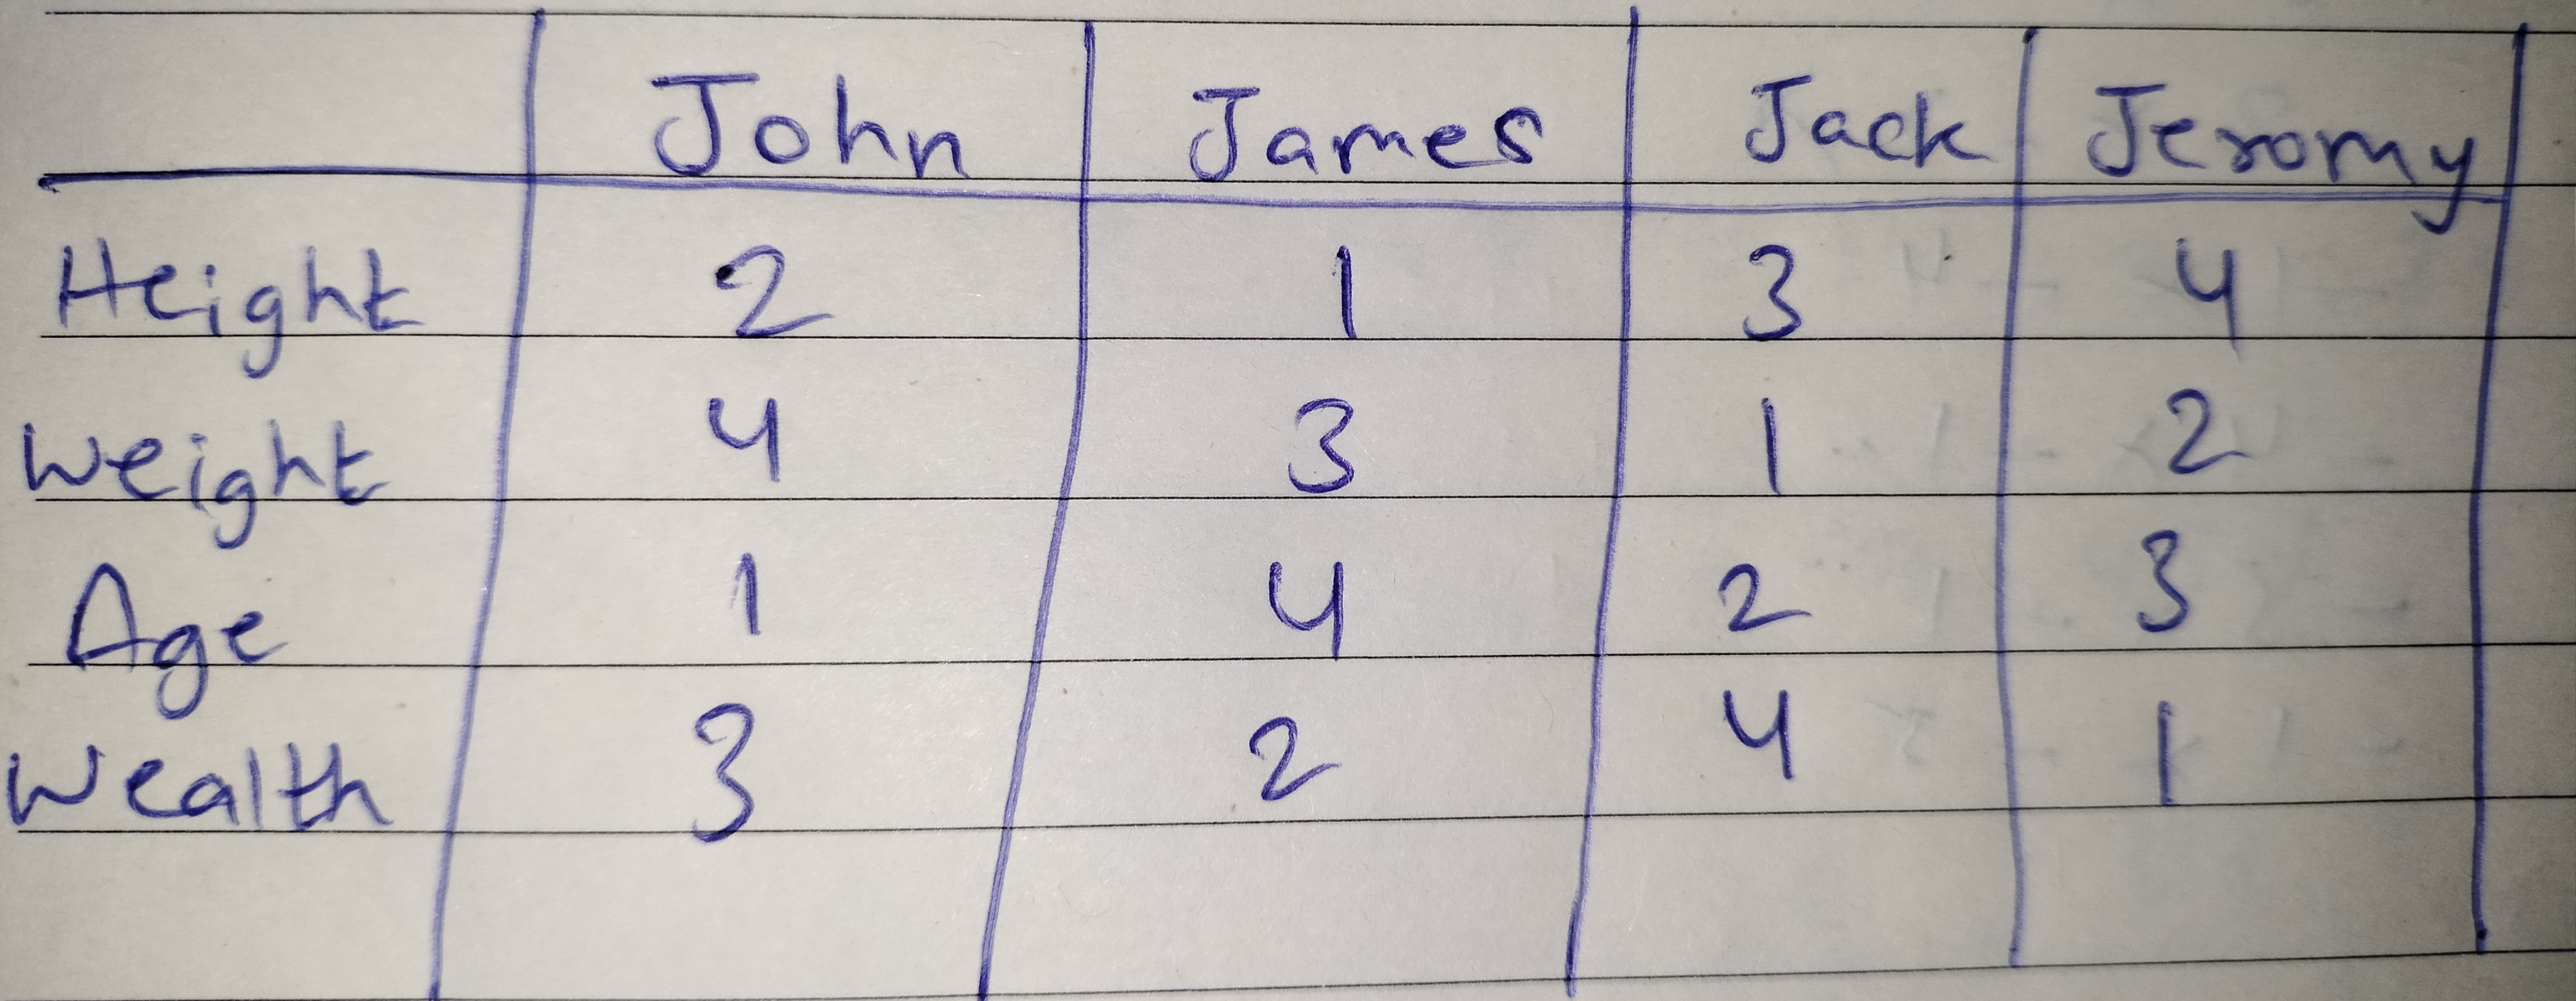 John James Jack Jeromy
Height 2 1 3 4
Weight 4 3 1 2
Age 1 4 2 3
Wealth 3 2 4 1